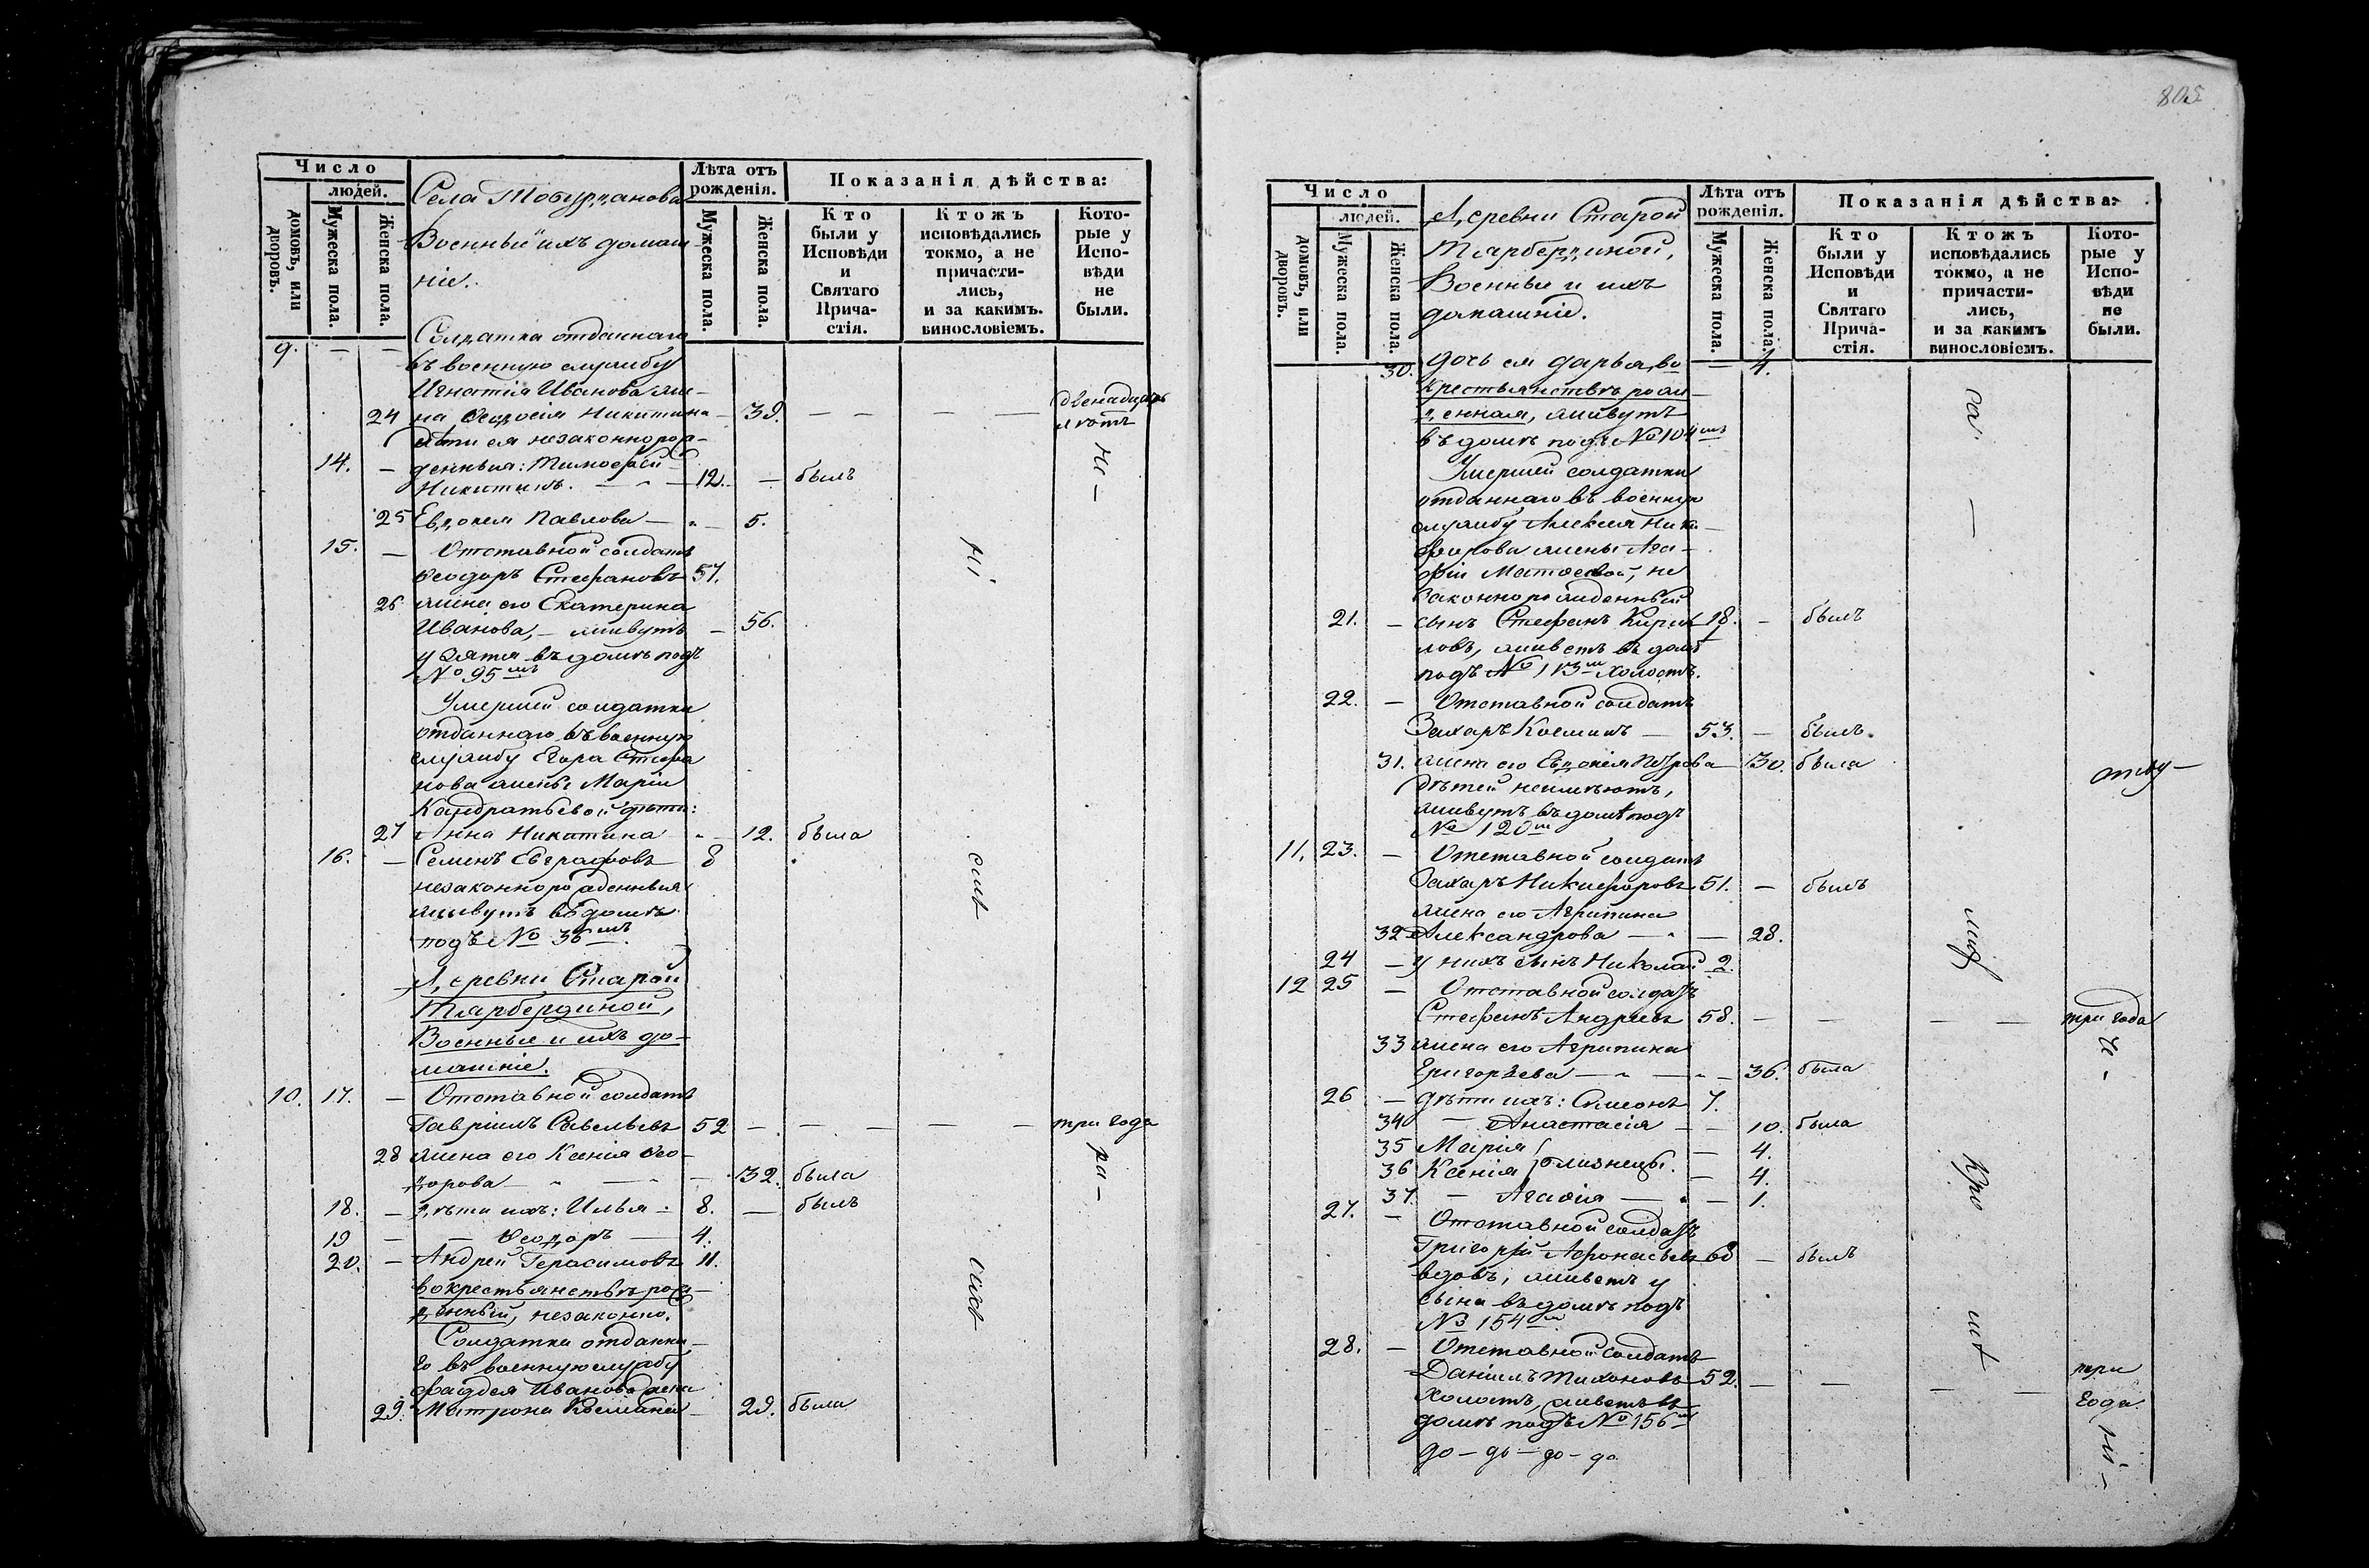 Число
людей.
домовъ, или дворовъ.
Мужеска пола.
Женска пола.
Лѣта отъ рожденія.
Мужеска пола.
Женска пола.
Показанія дѣйства:
Кто были у Исповѣди и Святаго Прича-стія.
Ктожъ исповѣдались токмо, а не причасти-лись, и за какимъ. винословіемъ.
Кото-рые у Испо-вѣди не были.
Села
Военныи ихъ домаш-
ніе.
9. — — Солдатка отданнаго
въ военную службу
Игнатія Иванова же-
24 на Ѳеодосія Никитина — 39. — — — — двенадцать лѣтъ
дѣти ея незаконнорож-
14. — денныя: Тимофей
Никитинъ. — 12. — былъ
25 Евдокея Павлова — 5.
15. — Отставной солдатъ
Ѳеодоръ Стефановъ 57.
26 жена его Екатерина
Иванова, — живутъ — 56.
у зятя въ домѣ подъ
№ 95мъ
Умершей солдатки
отданнаго въ военную
службу Егора Стефа
нова жены Маріи
Кандратьевой дѣти:
27 Анна Никитина — 12. была
16. — Семенъ Евграфовъ 8
незаконнорожденныя
живутъ въ домѣ
подъ № 36мъ.
Деревни Старой
Тярбердиной,
Военные и ихъ до-
машніе.
10. 17. — Отставной солдатъ
Гавріилъ Савельевъ 52 — — — — — три года
28 жена его Ксенія Ѳео-
дорова — — 32. была
18. — дѣти ихъ: Илья — 8. — былъ
19 — — Ѳеодоръ — 4.
20. — Андрей Герасимовъ 11.
въ крестьянствѣ рож-
денный, незаконно.
Солдатки отданна-
го въ военную службу
Фаддея Иванова жена
29. Матрона — 29. была
805
Число
людей.
домовъ, или дворовъ.
Мужеска пола.
Женска пола.
Лѣта отъ рожденія.
Мужеска пола.
Женска пола.
Показанія дѣйства:
Кто были у Исповѣди и Святаго Прича-стія.
Ктожъ исповѣдались токмо, а не причасти-лись, и за какимъ винословіемъ.
Кото-рые у Испо-вѣди не были.
Деревни Старой
Тярбердиной,
Военные и ихъ
домашніе.
30. дочь ея Дарья, во — 4.
крестьянствѣ рож-
денная, живутъ
въ домѣ подъ № 104мъ
Умершей солдатки
отданнаго въ военную
службу Алексея Ники-
форова жены Ага-
фіи Матѳеевой, не
законнорожденный
21. — сынъ Стефанъ Кирил 18. — былъ
ловъ, живетъ въ домѣ
подъ № 113м холостъ.
22. — Отставной солдатъ
Захаръ Косминъ — 53. — былъ.
31. жена его Евдокія Петрова — 30. была
дѣтей неимѣютъ,
живутъ въ домѣ подъ
№ 120м
11. 23. — Отставной солдатъ
Захаръ Никифоровъ 51. — былъ
жена его Агрипина
32 Александрова — — 28.
24 — у нихъ сынъ Николай 2.
12 25 — Отставной солдатъ
Стефанъ Андреевъ 58. — — — — три года
33 жена его Агрипина
Григорьева — — 36. была
26 — дѣти ихъ: Симеонъ 7.
34 — Анастасія — — 10. была
35 Марія — 4.
36 Ксенія близнецы. — 4.
37. — Агафія — — 1.
27. — Отставной солдатъ
Григорій Афонасьевъ 68 — былъ
вдовъ, живетъ у
сына въ домѣ подъ
№ 154м
28. — Отставной солдатъ
Даніилъ Тихоновъ 52. — — — — три года
холостъ, живетъ въ
домѣ подъ № 156м
до — до — до — до